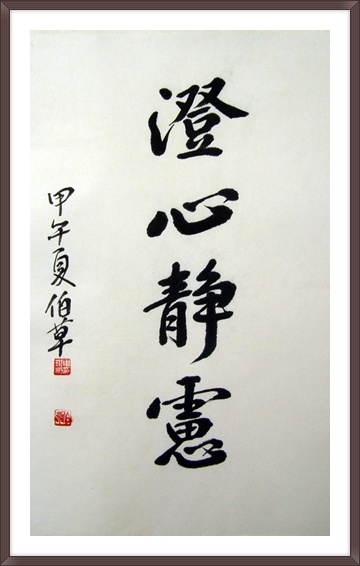 澄心静慮
甲午夏伯草